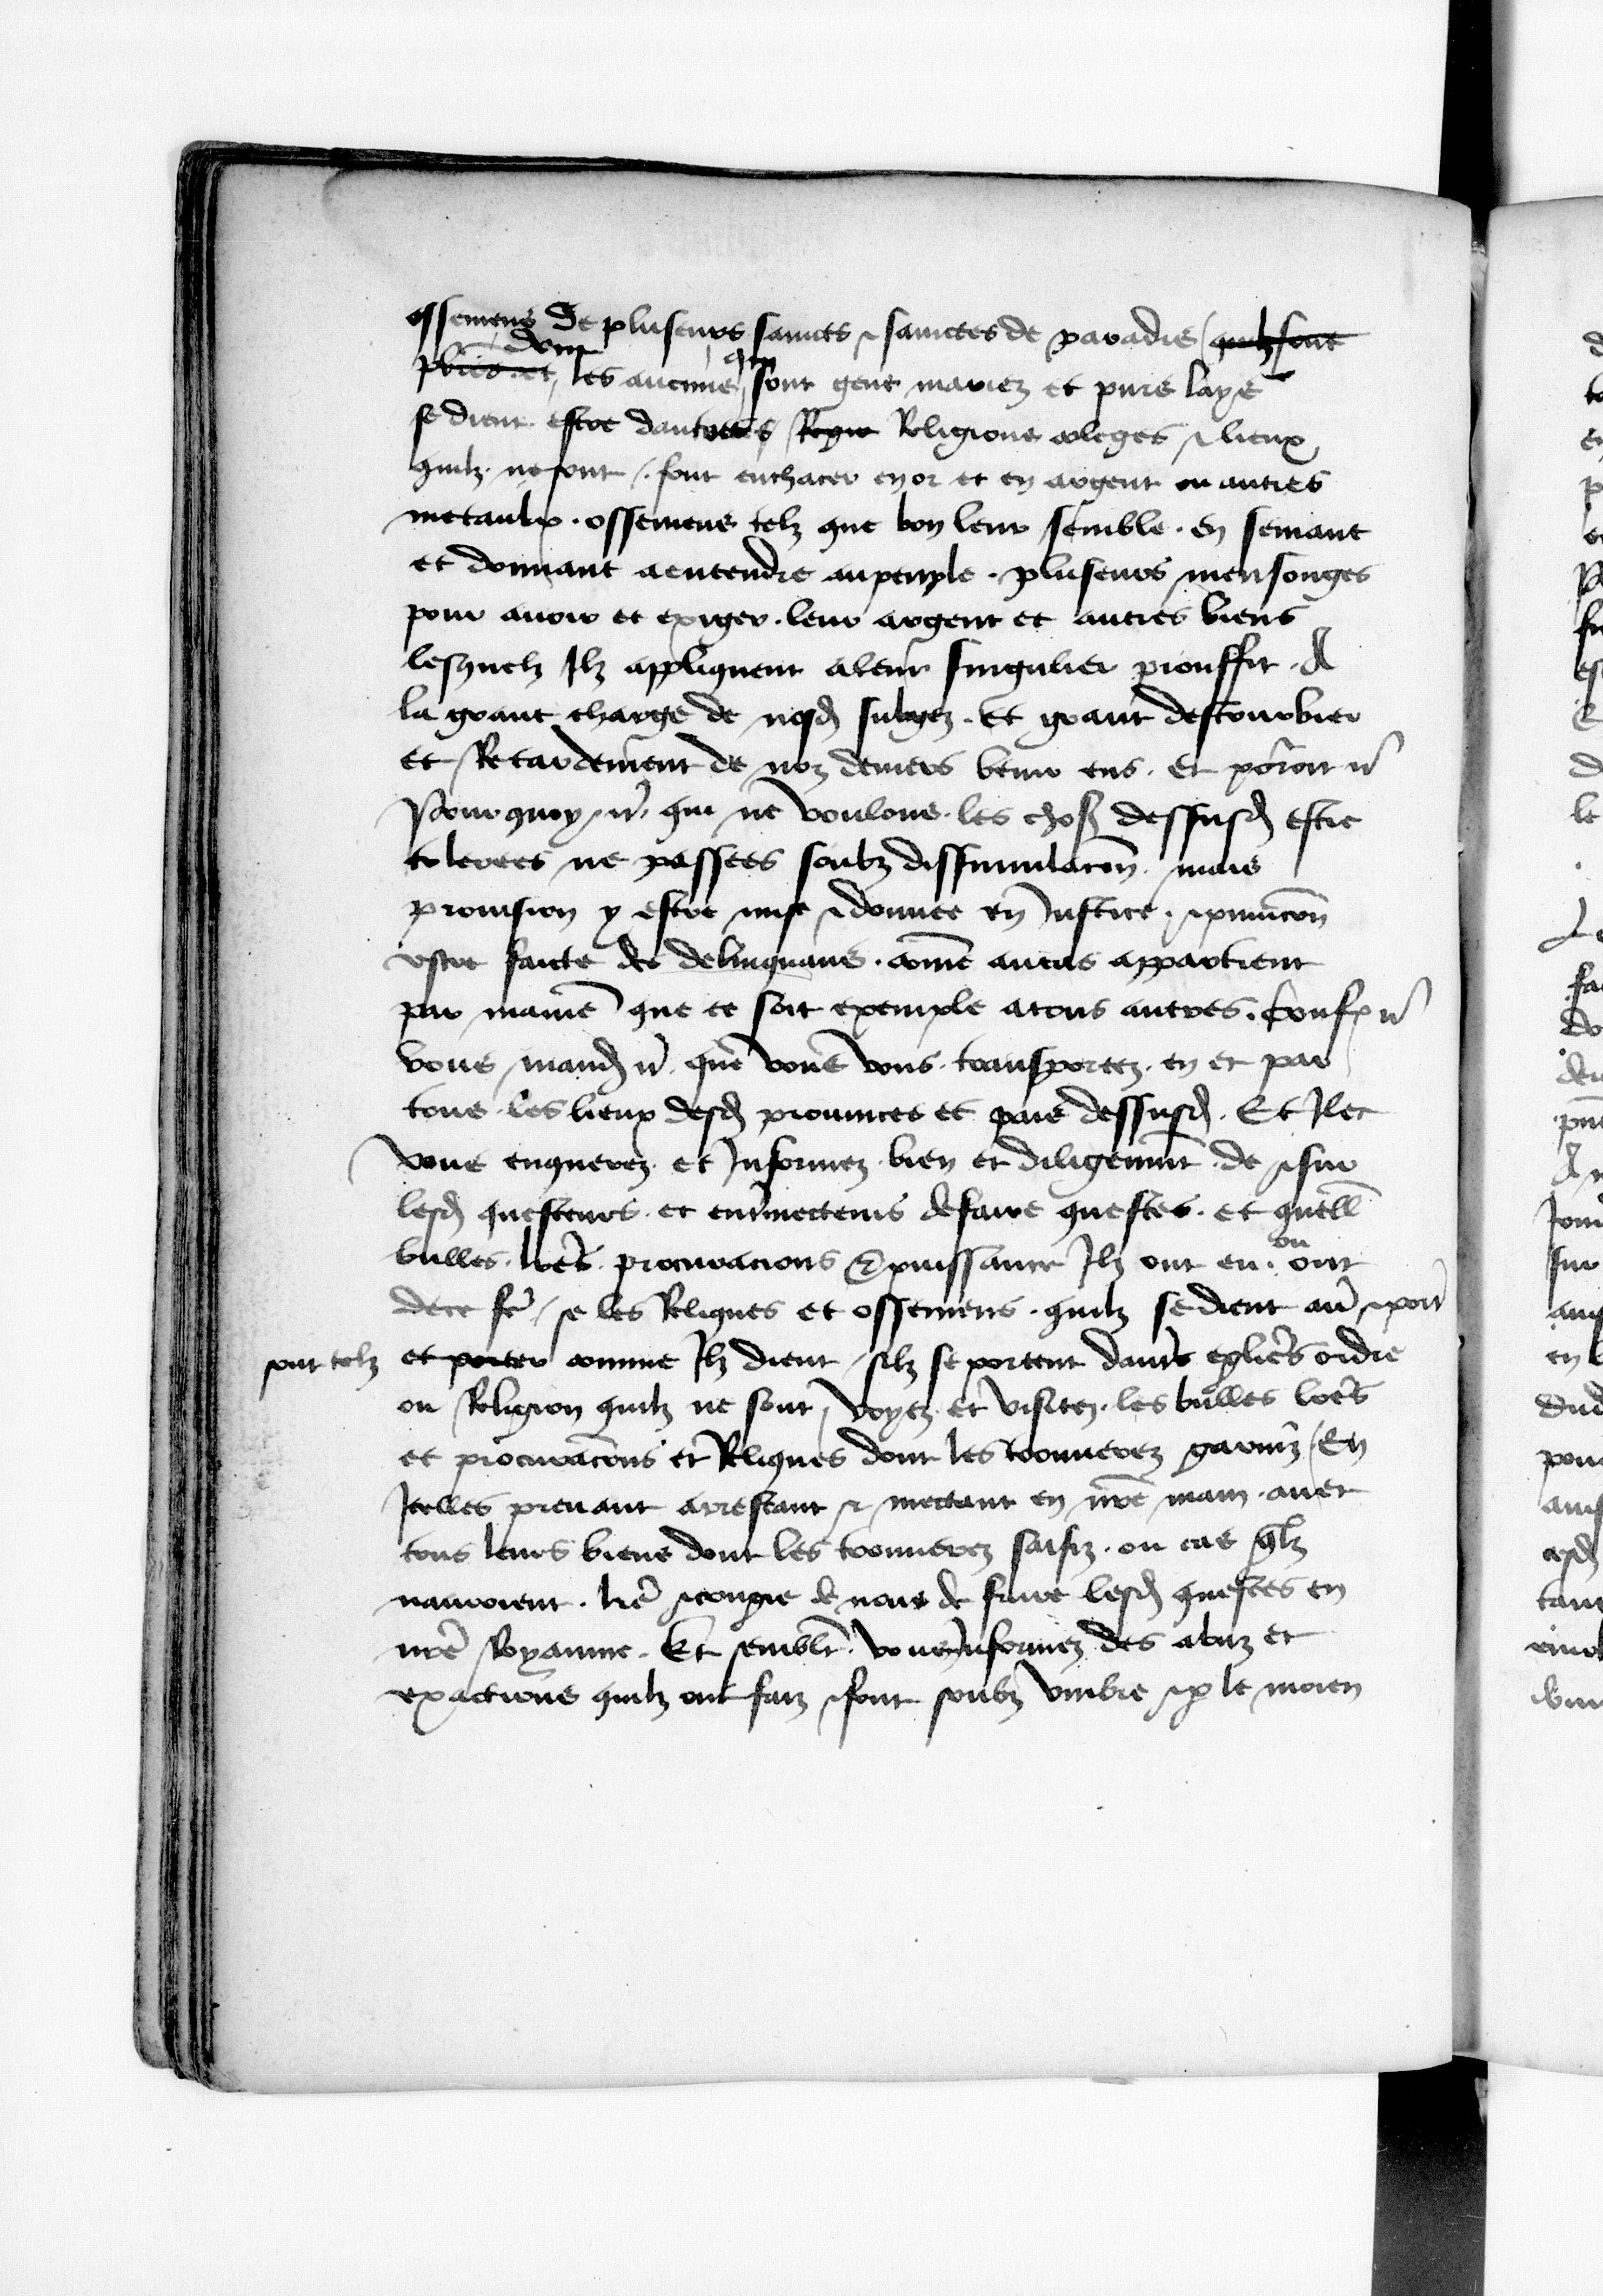 ossemens de pluseurs saincts & sainctes de paradis / quilz sont
pbres et dont les aucuns qui sont gens mariez et purs lays
se dient estre dautres Regie Religions coleges & lieux
quilz ne sont / font enchacer en or et en argent ou autres
metaulx . ossemens telz que bon leur semble . en semant
et donnant a entendre au peuple . pluseurs mensonges
pour avoir et exiger . leur argent et autres biens
lesquelz Ilz appliquent a leur singulier prouffit . A
la grant charge de nosd subgez . Et grant destourbier
et Retardement de noz deniers venir ens . Et
Pour quoy nous qui ne voulons . les choses dessusd estre
tolerees ne passees soubz dissimulacion . mais
provision y estre mise & donnee en Justice . & punicion
estre faicte des delinquans . comme au cas appartient
par maniere que ce soit exemple a tous autres .
vous mand que vous vous . transportez . en et par
tous les lieux desd provinces et pais dessusd . Et Ilec
vous enquerez . et Informez . bien et diligemment . de & sur
lesd questeurs . et entremecteurs de faire questes . et quelles
bulles . lettres . procuracions & puissance Ilz ont eu . ou ont
de ce faire / se les Reliques et ossemens . quilz se dient avoir & porter
sont telz et porter comme Ilz dient / silz se portent dautres eglises ordre
ou Religion quilz ne sont / voyez et visitez . les bulles lettres
et procuracions et Reliques dont les trouverez garniz / En
Icelles prenant arrestant & mectant en nostre main . avec
tous leurs biens dont les trouverez saisiz . ou cas quilz
nauroient . lettre & congie de nous de faire lesd questes en
nostre Royaume . Et semblablement . vous Informez des abuz et
exactions quilz ont faiz & font soubz umbre & par le moien